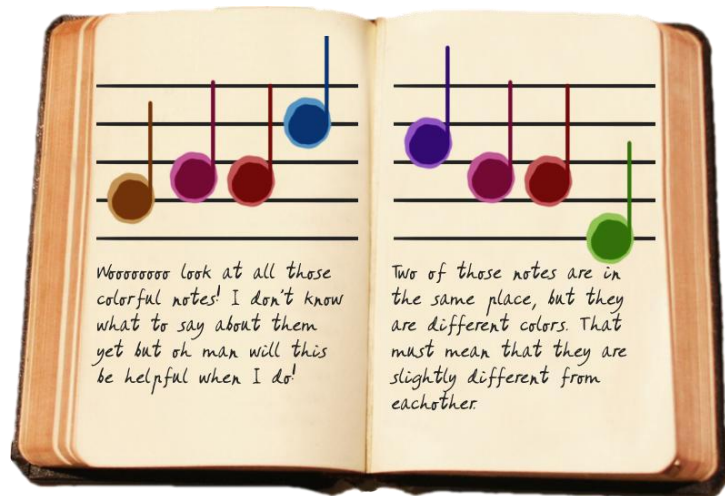 Woooooooo look at all those
colorful notes! I don't know
what to say about them
yet but oh man will this
be helpful when I do!
Two of those notes are in
the same place, but they
are different colors. That
must mean that they are
slightly different from
eachother.